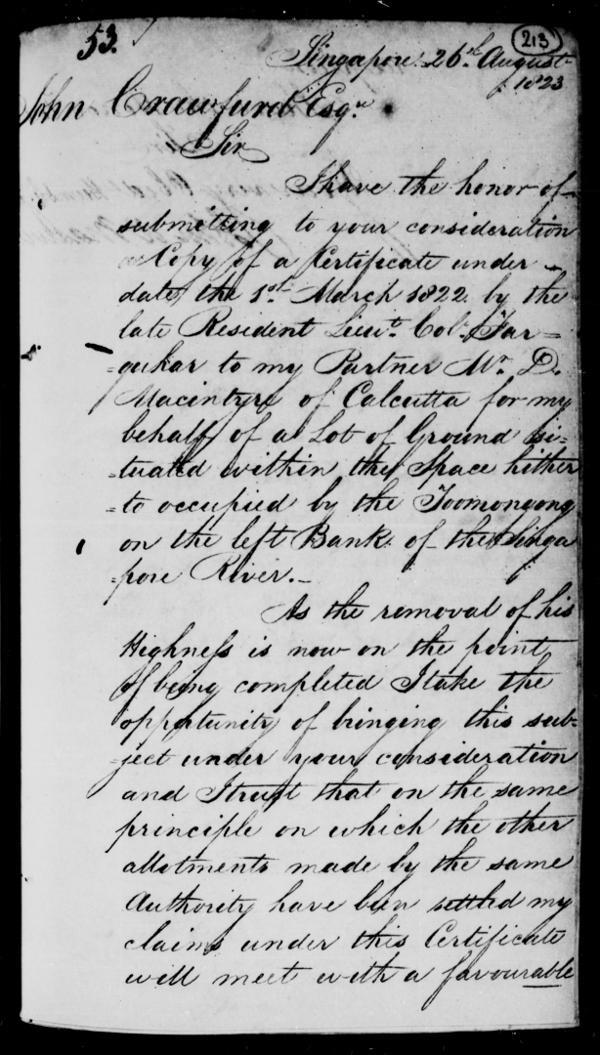 53.
213
Singapore 26th August
1823
John Crawfurd Esqr.
Sir
I have the honor of
submitting to your consideration
a Copy of a Certificate under
date, the 1st. March 1822 by the
late Resident Lieut. Col. Far=
=quhar to my Partner Mr. D.
Macintyre of Calcutta for my
behalf of a Lot of Ground si=
=tuated within the Space hither
=to occupied by the Toomongong
on the left Bank of the Singa
=pore River.–
As the removal of his
Highness is now on the point
of being completed I take the
opportunity of bringing this sub=
=ject under your consideration
and I trust that on the same
principle on which the other
allotments made by the same
Authority have been settled my
claims under this Certificate
will meet with a favourable